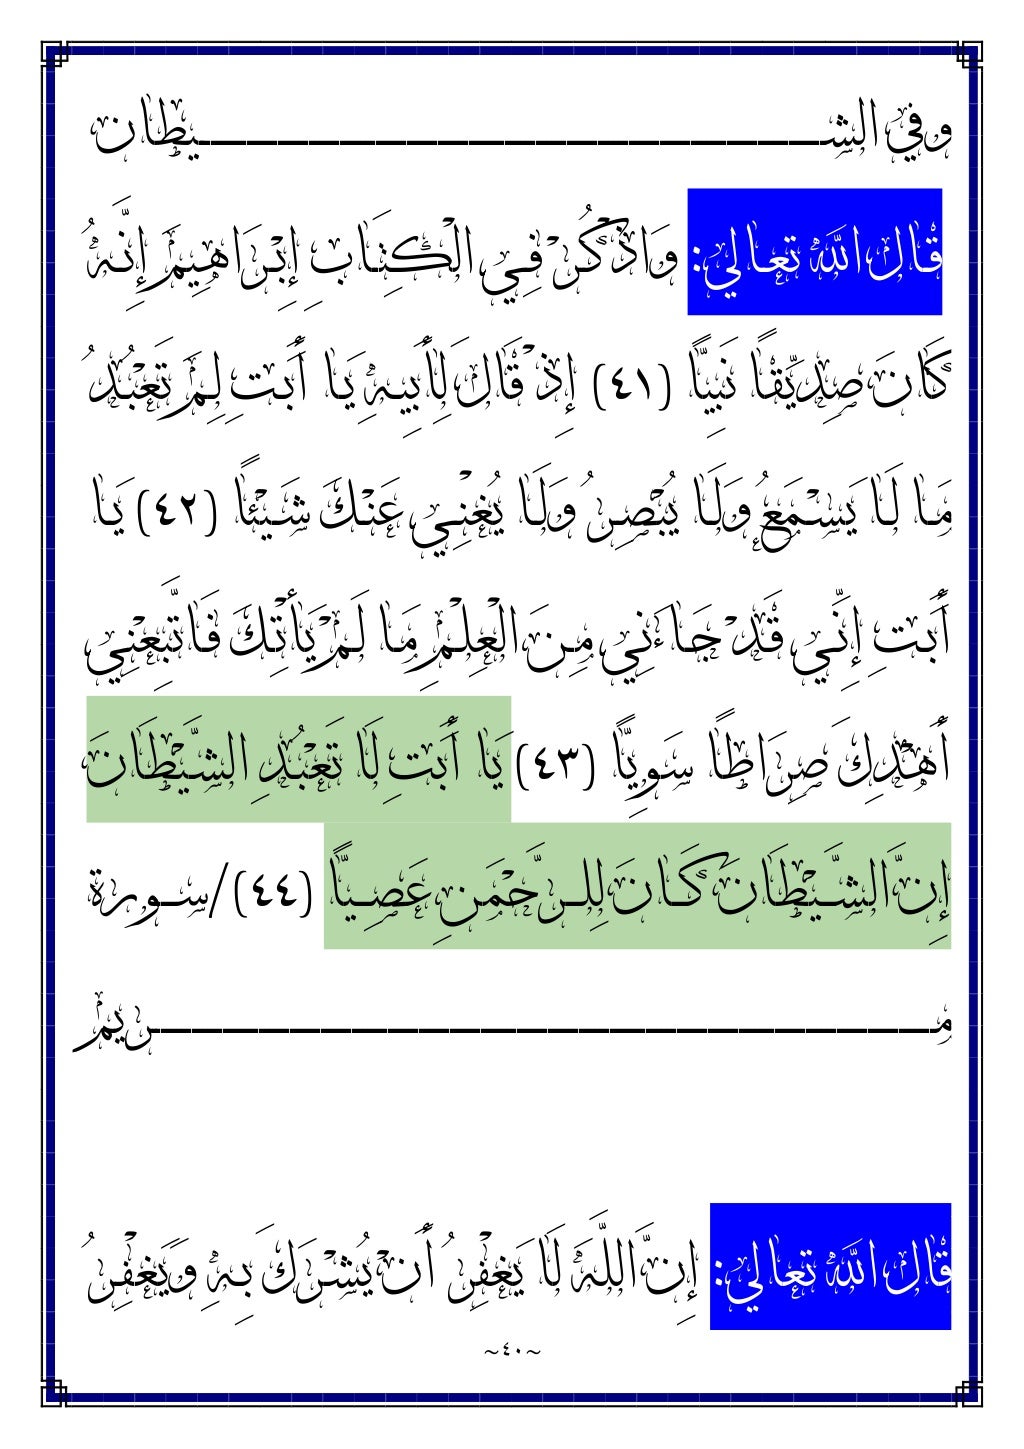 وفي الشـــــــــــــــــــــــــيطان
قال الله تعالي: وَاذْكُرْ فِي الْكِتَابِ إِبْرَاهِيمَ إِنَّهُ
كَانَ صِدِّيقًا نَبِيًّا (٤١) إِذْ قَالَ لِأَبِيهِ يَا أَبَتِ لِمَ تَعْبُدُ
مَا لَا يَسْمَعُ وَلَا يُبْصِرُ وَلَا يُغْنِي عَنْكَ شَيْئًا (٤٢) يَا
أَبَتِ إِنِّي قَدْ جَاءَنِي مِنَ الْعِلْمِ مَا لَمْ يَأْتِكَ فَاتَّبِعْنِي
أَهْدِكَ صِرَاطًا سَوِيًّا (٤٣) يَا أَبَتِ لَا تَعْبُدِ الشَّيْطَانَ
إِنَّ الشَّيْطَانَ كَانَ لِلرَّحْمَنِ عَصِيًّا (٤٤)/سورة
مـــــــــــــــــــــــــــــــريم
قال الله تعالي: إِنَّ اللَّهَ لَا يَغْفِرُ أَنْ يُشْرَكَ بِهِ وَيَغْفِرُ
~٤٠~